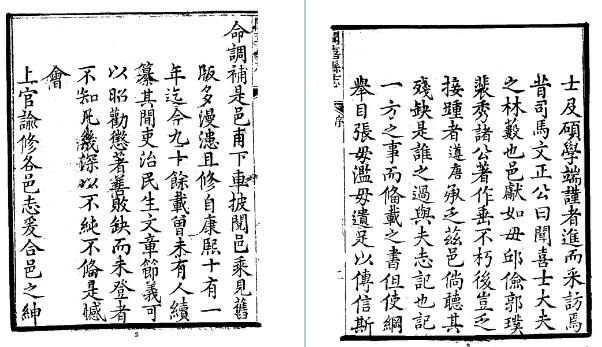 命調補是邑甫下車披閱邑乘見舊
版多漫漶且修自康熙十有一
年迄今九十餘載曾未有人續
纂其間吏治民生文章節義可
以昭勸懲著善敗缺而未登者
不知凡幾深以不純不備是憾
會
上官諭修各邑志爰合邑之紳
2
聞喜縣志
序
士及碩學端謹者進而采訪焉
昔司馬文正公曰聞喜士大夫
之林藪也邑獻如毋邱儉郭璞
裴秀諸公著作垂不朽後豈乏
接踵者遵唐承乏茲邑倘聽其
殘缺是誰之過與夫志記也記
一方之事而備載之書但使綱
舉目張毋濫毋遺足以傳信斯